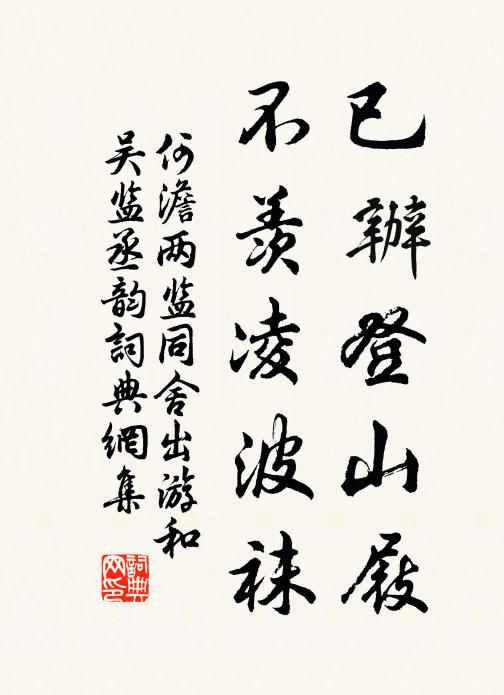 已辦登山屐
不羨凌波袜
何澹两监同舍出游和
吴监丞韵詞典網集
詞典
网印